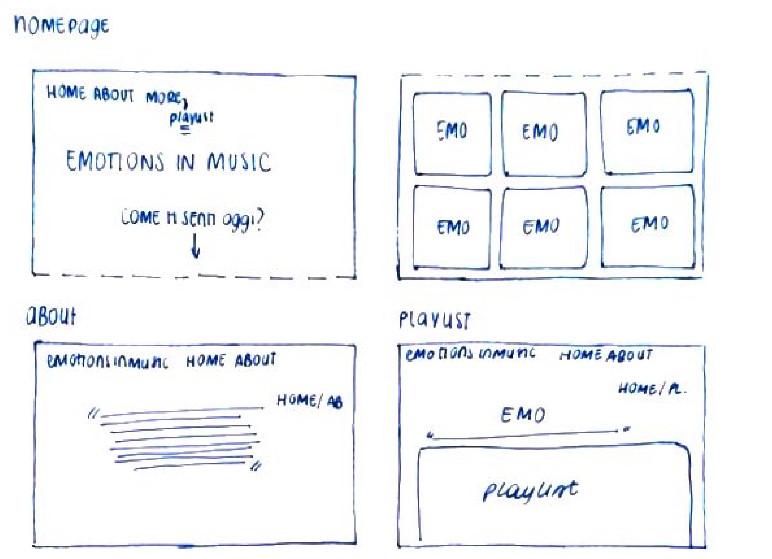 HOMEPAGE
HOME ABOUT MORE
playlist
EMOTIONS IN MUSIC
COME TI SENTI oggi?
EMO EMO EMO
EMO EMO EMO
ABOUT
emotionsinmusic HOME ABOUT
HOME/AB
“
”
PLAYLIST
emotionsinmusic HOME ABOUT
HOME/PL.
EMO
“ ”
playlist